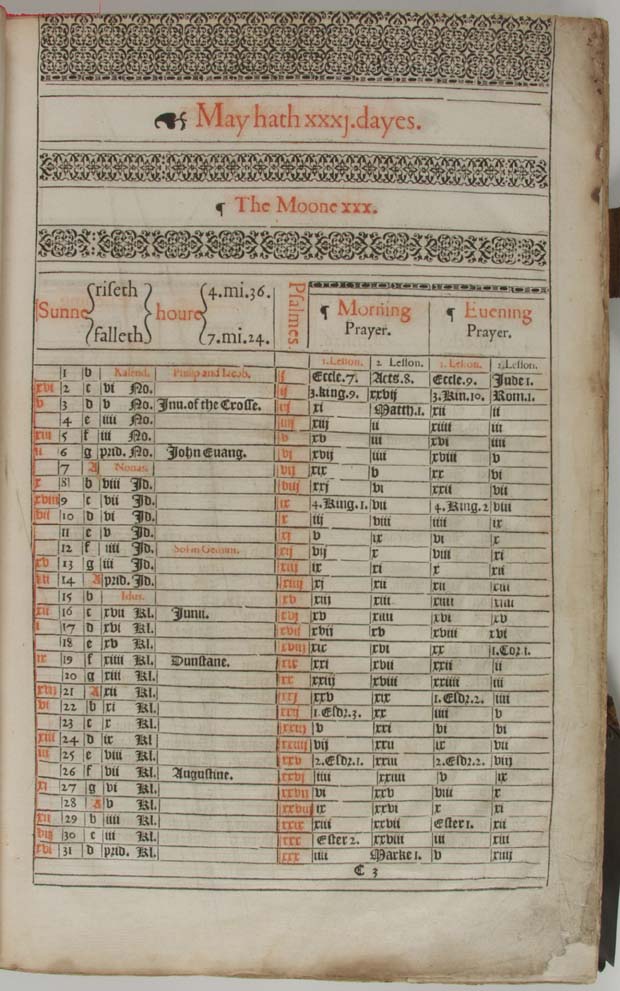 May hath xxxj.dayes.
¶ The Moone xxx.
Sunne riseth falleth houre 4.mi.36. 7.mi.24. Psalmes. ¶ Morning Prayer. ¶ Euening Prayer.
1.Lesson. 2. Lesson. 1.Lesson. 2.Lesson.
1 b Kalend. Philip and Iacob. j Eccle.7. Acts.8. Eccle.9. Jude 1.
xvi 2 c vi No. ij 3.king.9. xxvij 3.Kin.10. Rom.1.
v 3 d v No. Inu.of the Crosse. iij xi Matth.1. xii ii
4 e iiii No. iiij xiij ii xiiii iii
xiii 5 f iii No. v xv iii xvi iiii
ii 6 g prid. No. John Euang. vi xvij iiii xviii v
7 A Nonas. vij xix v xx vi
x 8 b viii Jd. viij xxj vi xxii vii
xviii 9 c vii Jd. ix 4.King.1. vii 4.King.2 viii
vii 10 d vi Jd. x iij viii iiii ix
11 e v Jd. xj v ix vi x
12 f iiii Jd. Sol in Gemini. xij vij x viii xi
xv 13 g iii Jd. xiij ix xi x xii
iiii 14 A prid. Jd. xiiij xj xii xii xiii
15 b Idus. xv xiii xiii xiiii xiiii
xii 16 c xvii Kl. Junii. xvi xv xiiii xvi xv
i 17 d xvi Kl. xvij xvij xv xviii xvi
18 e xv Kl. xviij xix xvi xx 1.Cor 1.
ix 19 f xiiii Kl. Dunstane. xix xxi xvii xxii ii
20 g xiii Kl. xx xxiij xviii xxiiii iii
xvij 21 A xii Kl. xxj xxv xix 1.Esdr.2. iiii
vi 22 b xi Kl. xxij 1.Esdr.3. xx iiii v
23 c x Kl. xxiij v xxi vi vi
xiiii 24 d ix Kl xxiiij vij xxii ix vii
iii 25 e viii Kl. xxv 2.Esdr.1. xxiii 2.Esdr.2. viij
26 f vii Kl. Augustine. xxvj iiii xxiiii v ix
xi 27 g vi Kl. xxvij vi xxv viii x
28 A v Kl. xxviij ix xxvi x xi
xix 29 b iiii Kl. xxix xiii xxvii Ester 1. xii
viij 30 c iii Kl. xxx Ester 2. xxviii iii xiii
xvi 31 d prid. Kl. xxx iiii Marke 1. v xiiij
C 3